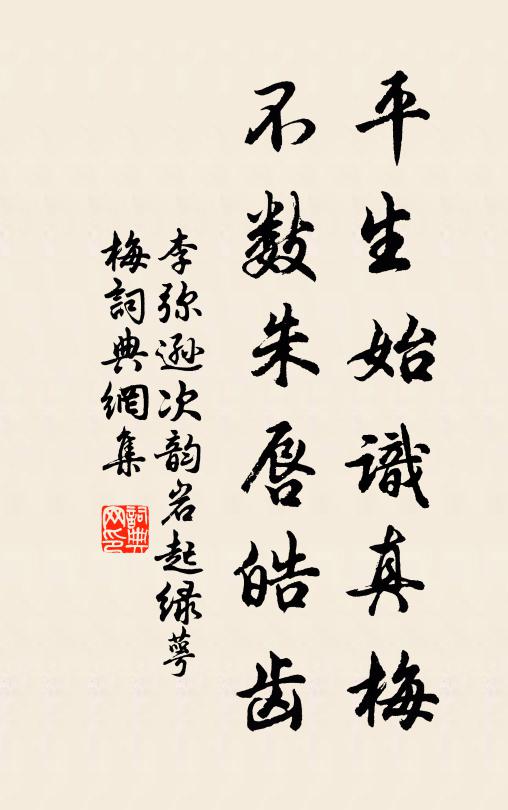 平生始識真梅
不数朱唇皓齿
李弥遜次韵岩起绿萼
梅詞典網集
詞典网印